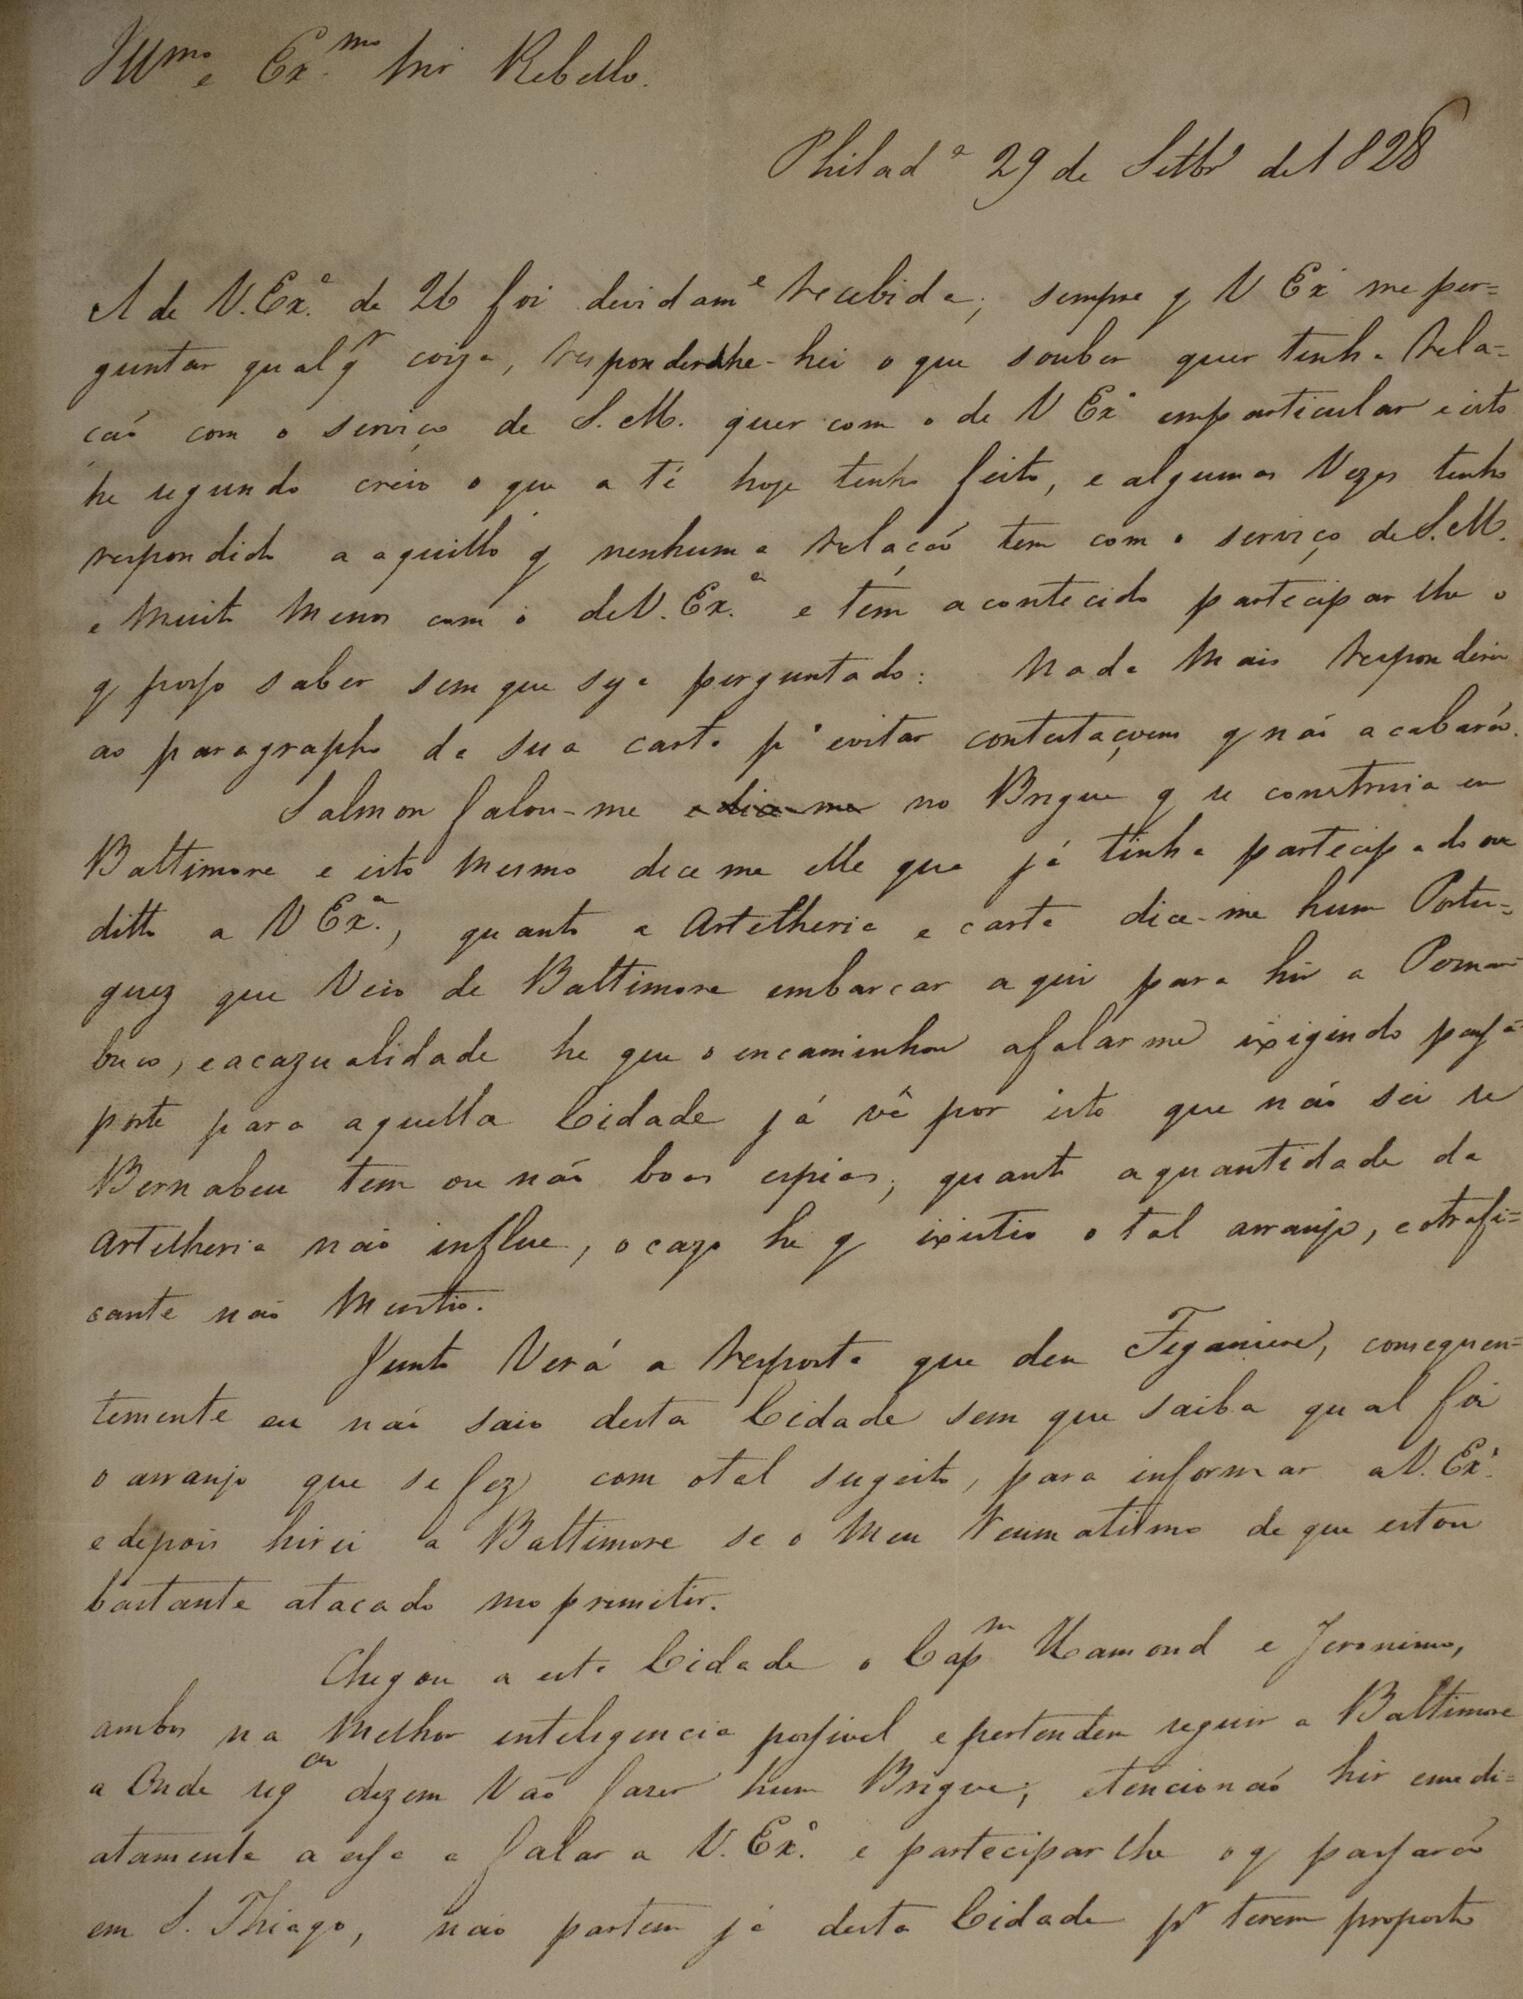 Illmo e Ex.mo Snr Rebello.
Philada 29 de Settbr de 1828
A de V. Ex.a de 26 foi devidame recebida; sempre q V Exa me per=
guntar qualqr coiza, responderlhe-hei o que souber quer tenha rela=
ção com o serviço de S. M. quer com o de V Exa emparticular e isto
he segundo creio o que a té hoje tenho feito, e algumas Vezes tenho
respondido a aquillo q nenhuma relação tem com o serviço de S. M.
e muito menos com o de V. Ex.a e tem acontecido partecipar lhe o
q posso saber sem que seja perguntado: Nada mais responderei
ao paragrapho da sua carta pa evitar contestaçoens q não acabarão.
Salmon falou-me e dice-me no Brigue q se construia em
Baltimore e isto mesmo dice me elle que já tinha partecipado ou
ditto a V Ex.a, quanto a Artelheria e carta dice-me hum Portu=
guez que Veio de Baltimore embarcar aqui para hir a Pernam=
buco, e acazualidade he que o encaminhou afalarme exigindo passa=
porte para aquella Cidade já vê por isto que não sei se
Bernabeu tem ou não boas espias; quanto aquantidade da
Artelheria não influe, o cazo he q existio o tal arranjo, e otrafi=
cante não mentio.
Junto Verá a resposta que deu Feganiere, consequen=
temente eu não saio desta Cidade sem que saiba qual foi
o arranjo que se fez com otal sugeito, para informar a V. Exa.
e depois hirei a Baltimore se o meu reumatismo de que estou
bastante atacado mo premetir.
Chegou a esta Cidade o Capm Hamond e Jeronimo,
ambos na Melhor inteligencia possivel e pertendem seguir a Baltimore
a Onde segdo dezem Vão fazer hum Brigue; etencionão hir emedi=
atamente a essa a falar a V. Exa. e partecipar lhe oq passarão
em S. Thiago, não partem já desta Cidade pr terem proposto